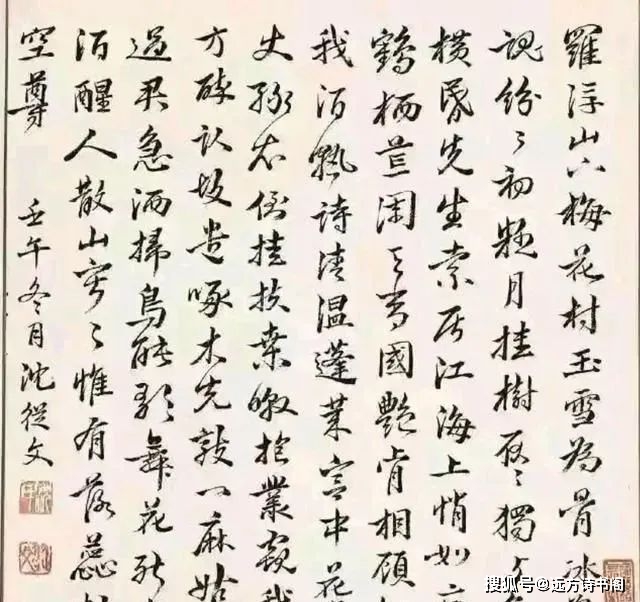 羅浮山下梅花村玉雪為骨冰
魂紛々初疑月挂樹耿々獨与
橫昏先生索居江海上悄如
鶴栖荒園天香國艷肯相顧
我酒熟詩清溫蓬萊宮中花
史綠衣倒挂扶桑暾抱叢窺我
方醉臥故遣啄木先敲門麻姑
過君急洒掃鳥能歌舞花能
酒醒人散山寂々惟有落蕊
空尊
壬午冬月沈從文
搜狐号@远方诗书阁